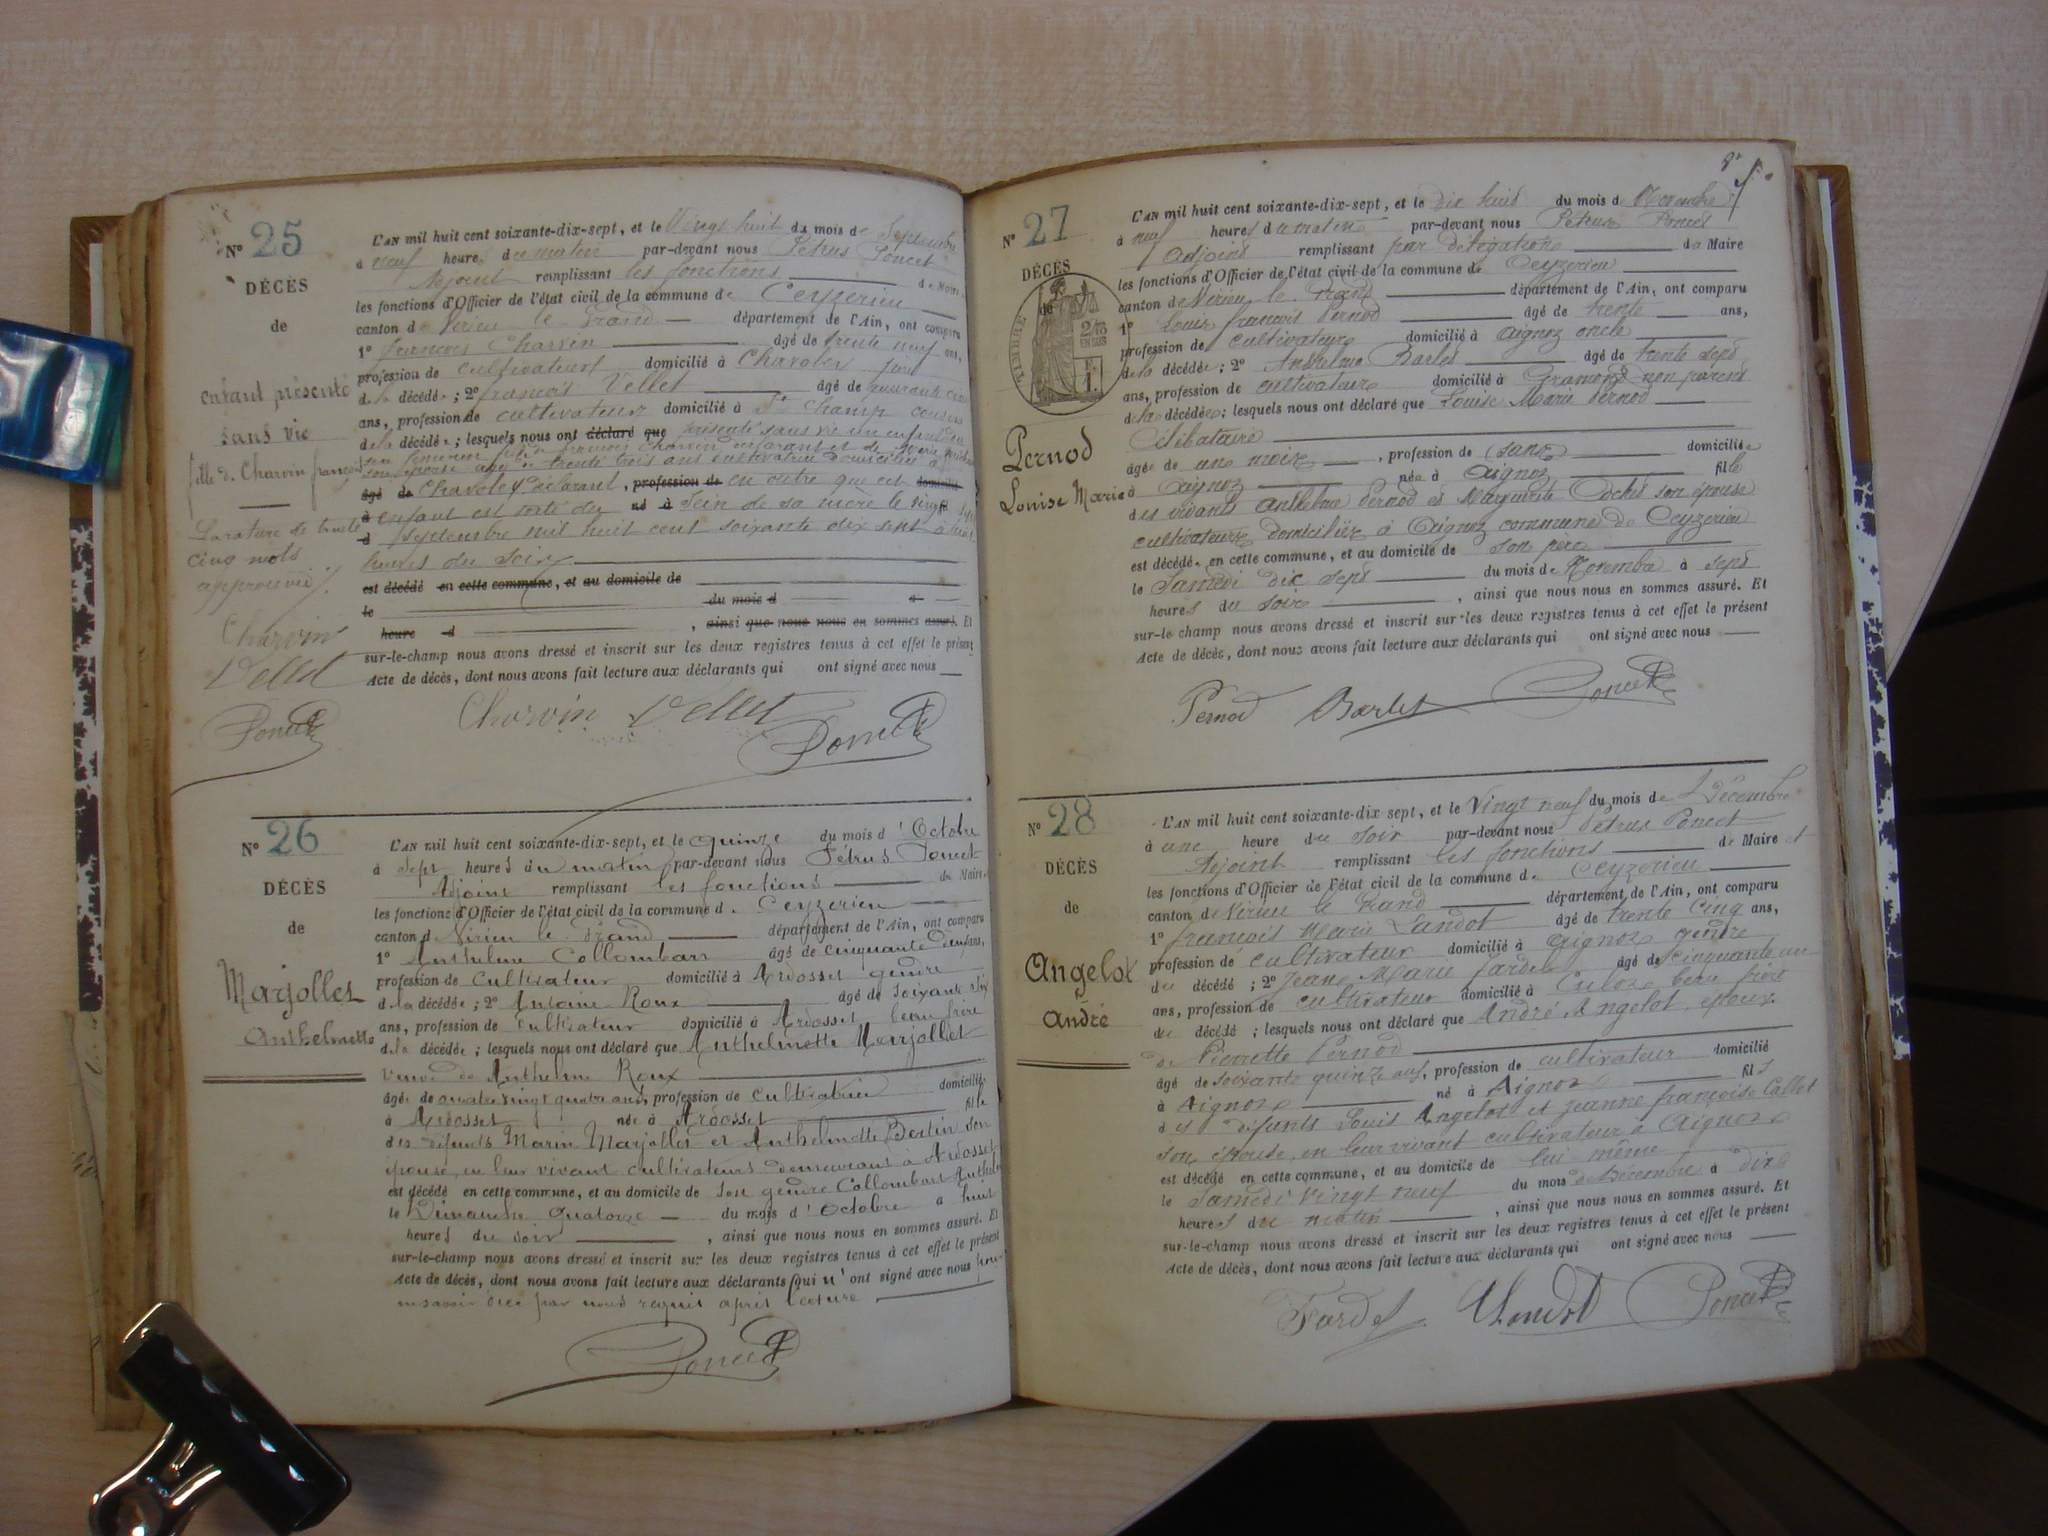 N° 25
DÉCÈS
de
enfant présenté
sans vie
fille d. Charvin françois
La rature de trente
cinq mots
approuvée
Charvin
Vellet
Poncet
L'AN mil huit cent soixante-dix-sept, et le Vingt huit du mois de Septembre
à neuf heures du matin par-devant nous Pétrus Poncet
Adjoint remplissant les fonctions de Maire
les fonctions d'Officier de l'état civil de la commune de Ceyzerieu
canton de Virieu le Grand département de l'Ain, ont comparu
1° françois Charvin âgé de trente neuf ans,
profession de cultivateur domicilié à Chavoley père
de la décédée ; 2° françois Vellet âgé de quarante cinq
ans, profession de cultivateur domicilié à St Champ cousin
de la décédée ; lesquels nous ont déclaré que présenté sans vie un enfant
françois Charvin déclarant et de Marie
son épouse âgée de trente trois ans cultivatrice domiciliée à
âgé de Chavoley déclarant, profession de en outre que cet domicilié
à enfant est sorti du né à sein de sa mère le vingt sept
d septembre mil huit cent soixante dix sept à huit
heures du soir
est décédé en cette commune, et au domicile de
le du mois d à
heure d , ainsi que nous nous en sommes assuré. Et
sur-le-champ nous avons dressé et inscrit sur les deux registres tenus à cet effet le présent
Acte de décès, dont nous avons fait lecture aux déclarants qui ont signé avec nous
Charvin Vellet
Poncet
N° 26
DÉCÈS
de
Marjollet
Anthelmette
L'AN mil huit cent soixante-dix-sept, et le quinze du mois d'Octobre
à sept heures du matin par-devant nous Pétrus Poncet
Adjoint remplissant les fonctions de Maire
les fonctions d'Officier de l'état civil de la commune d. Ceyzerieu
canton d. Virieu le Grand département de l'Ain, ont comparu
1° Anthelme Collombart âgé de cinquante deux ans,
profession de cultivateur domicilié à Ardosset gendre
de la décédée ; 2° Antoine Roux âgé de soixante six
ans, profession de cultivateur domicilié à Ardosset beau frère
de la décédée ; lesquels nous ont déclaré que Anthelmette Marjollet
veuve de Anthelme Roux
âgée de quatre vingt quatre ans, profession de cultivatrice domiciliée
à Ardosset née à Ardosset fille
des défunts Marin Marjollet et Anthelmette Bertin son
épouse, en leur vivant cultivateurs demeurant à Ardosset
est décédé en cette commune, et au domicile de son gendre Collombart Anthelme
le Dimanche quatorze du mois d'Octobre à huit
heures du soir , ainsi que nous nous en sommes assuré. Et
sur-le-champ nous avons dressé et inscrit sur les deux registres tenus à cet effet le présent
Acte de décès, dont nous avons fait lecture aux déclarants qui n'ont signé avec nous pour
ne savoir par nous requis après lecture
Poncet
N° 27
DÉCÈS
de
TIMBRE
2/10
EN SUS
Pernod
Louise Marie
L'AN mil huit cent soixante-dix-sept, et le dix huit du mois de Novembre
à neuf heures du matin par-devant nous Pétrus Poncet
Adjoint remplissant par délégation du Maire
les fonctions d'Officier de l'état civil de la commune de Ceyzerieu
canton de Virieu le Grand département de l'Ain, ont comparu
1° Louis françois Pernod âgé de trente ans,
profession de cultivateur domicilié à Aignoz oncle
de la décédée ; 2° Anthelme Barlet âgé de trente sept
ans, profession de cultivateur domicilié à Gramond non parent
de la décédée ; lesquels nous ont déclaré que Louise Marie Pernod
Célibataire
âgée de un mois , profession de (sans) domiciliée
à Aignoz née à Aignoz fille
des vivants Anthelme Pernod et Marguerite son épouse
cultivateurs domiciliés à Aignoz commune de Ceyzerieu
est décédée en cette commune, et au domicile de son père
le Samedi dix sept du mois de Novembre à sept
heures du soir , ainsi que nous nous en sommes assuré. Et
sur-le champ nous avons dressé et inscrit sur les deux registres tenus à cet effet le présent
Acte de décès, dont nous avons fait lecture aux déclarants qui ont signé avec nous
Pernod Barlet Poncet
N° 28
DÉCÈS
de
Angelot
André
L'AN mil huit cent soixante-dix sept, et le Vingt neuf du mois de Décembre
à une heure du soir par-devant nous Pétrus Poncet
Adjoint remplissant les fonctions de Maire et
les fonctions d'Officier de l'état civil de la commune d. Ceyzerieu
canton de Virieu le Grand département de l'Ain, ont comparu
1° françois Marie Landot âgé de trente cinq ans,
profession de cultivateur domicilié à Aignoz gendre
du décédé ; 2° Jean Marie fardel âgé de cinquante un
ans, profession de cultivateur domicilié à Culoz beau frère
du décédé ; lesquels nous ont déclaré que André Angelot, époux
de Pierrette Pernod
âgé de soixante quinze ans, profession de cultivateur domicilié
à Aignoz né à Aignoz fils
des défunts Louis Angelot et Jeanne françoise Collet
son épouse, en leur vivant cultivateur à Aignoz
est décédé en cette commune, et au domicile de lui même
le Samedi vingt neuf du mois de Décembre à dix
heures du matin , ainsi que nous nous en sommes assuré. Et
sur-le-champ nous avons dressé et inscrit sur les deux registres tenus à cet effet le présent
Acte de décès, dont nous avons fait lecture aux déclarants qui ont signé avec nous
Fardel Landot Poncet